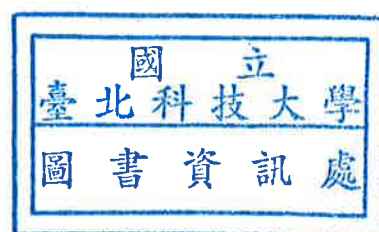 國立
臺北科技大學
圖書資訊處